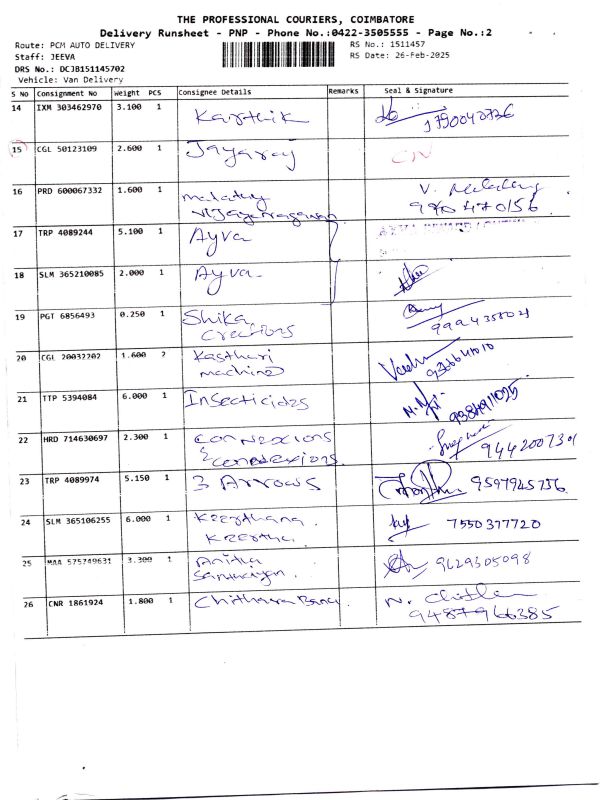 THE PROFESSIONAL COURIERS, COIMBATORE
Delivery Runsheet - PNP - Phone No.:0422-3505555 - Page No.:2
Route: PCM AUTO DELIVERY RS No.: 1511457
Staff: JEEVA RS Date: 26-Feb-2025
DRS No.: DCJB151145702
Vehicle: Van Delivery
S No Consignment No Weight PCS Consignee Details Remarks Seal & Signature
14 IXM 303462970 3.100 1 Karthik
15 CGL 50123109 2.600 1 Jayaraj CN
16 PRD 600067332 1.600 1 malathy V.
vijayaragavan
17 TRP 4089244 5.100 1 Ayva
18 SLM 365210085 2.000 1 Ayva
19 PGT 6856493 0.250 1 Shika
creations
20 CGL 20032202 1.600 2 Kasthuri
machine
21 TTP 5394084 6.000 1 Insecticides
22 HRD 714630697 2.300 1 connexions
9442007301
23 TRP 4089974 5.150 1 3 Arrows 9597945756
24 SLM 365106255 6.000 1 Keerthana 7550377720
Keerthi
25 MAA 575749631 3.300 1 Anitha 9629305098
26 CNR 1861924 1.800 1 N.
9487966385